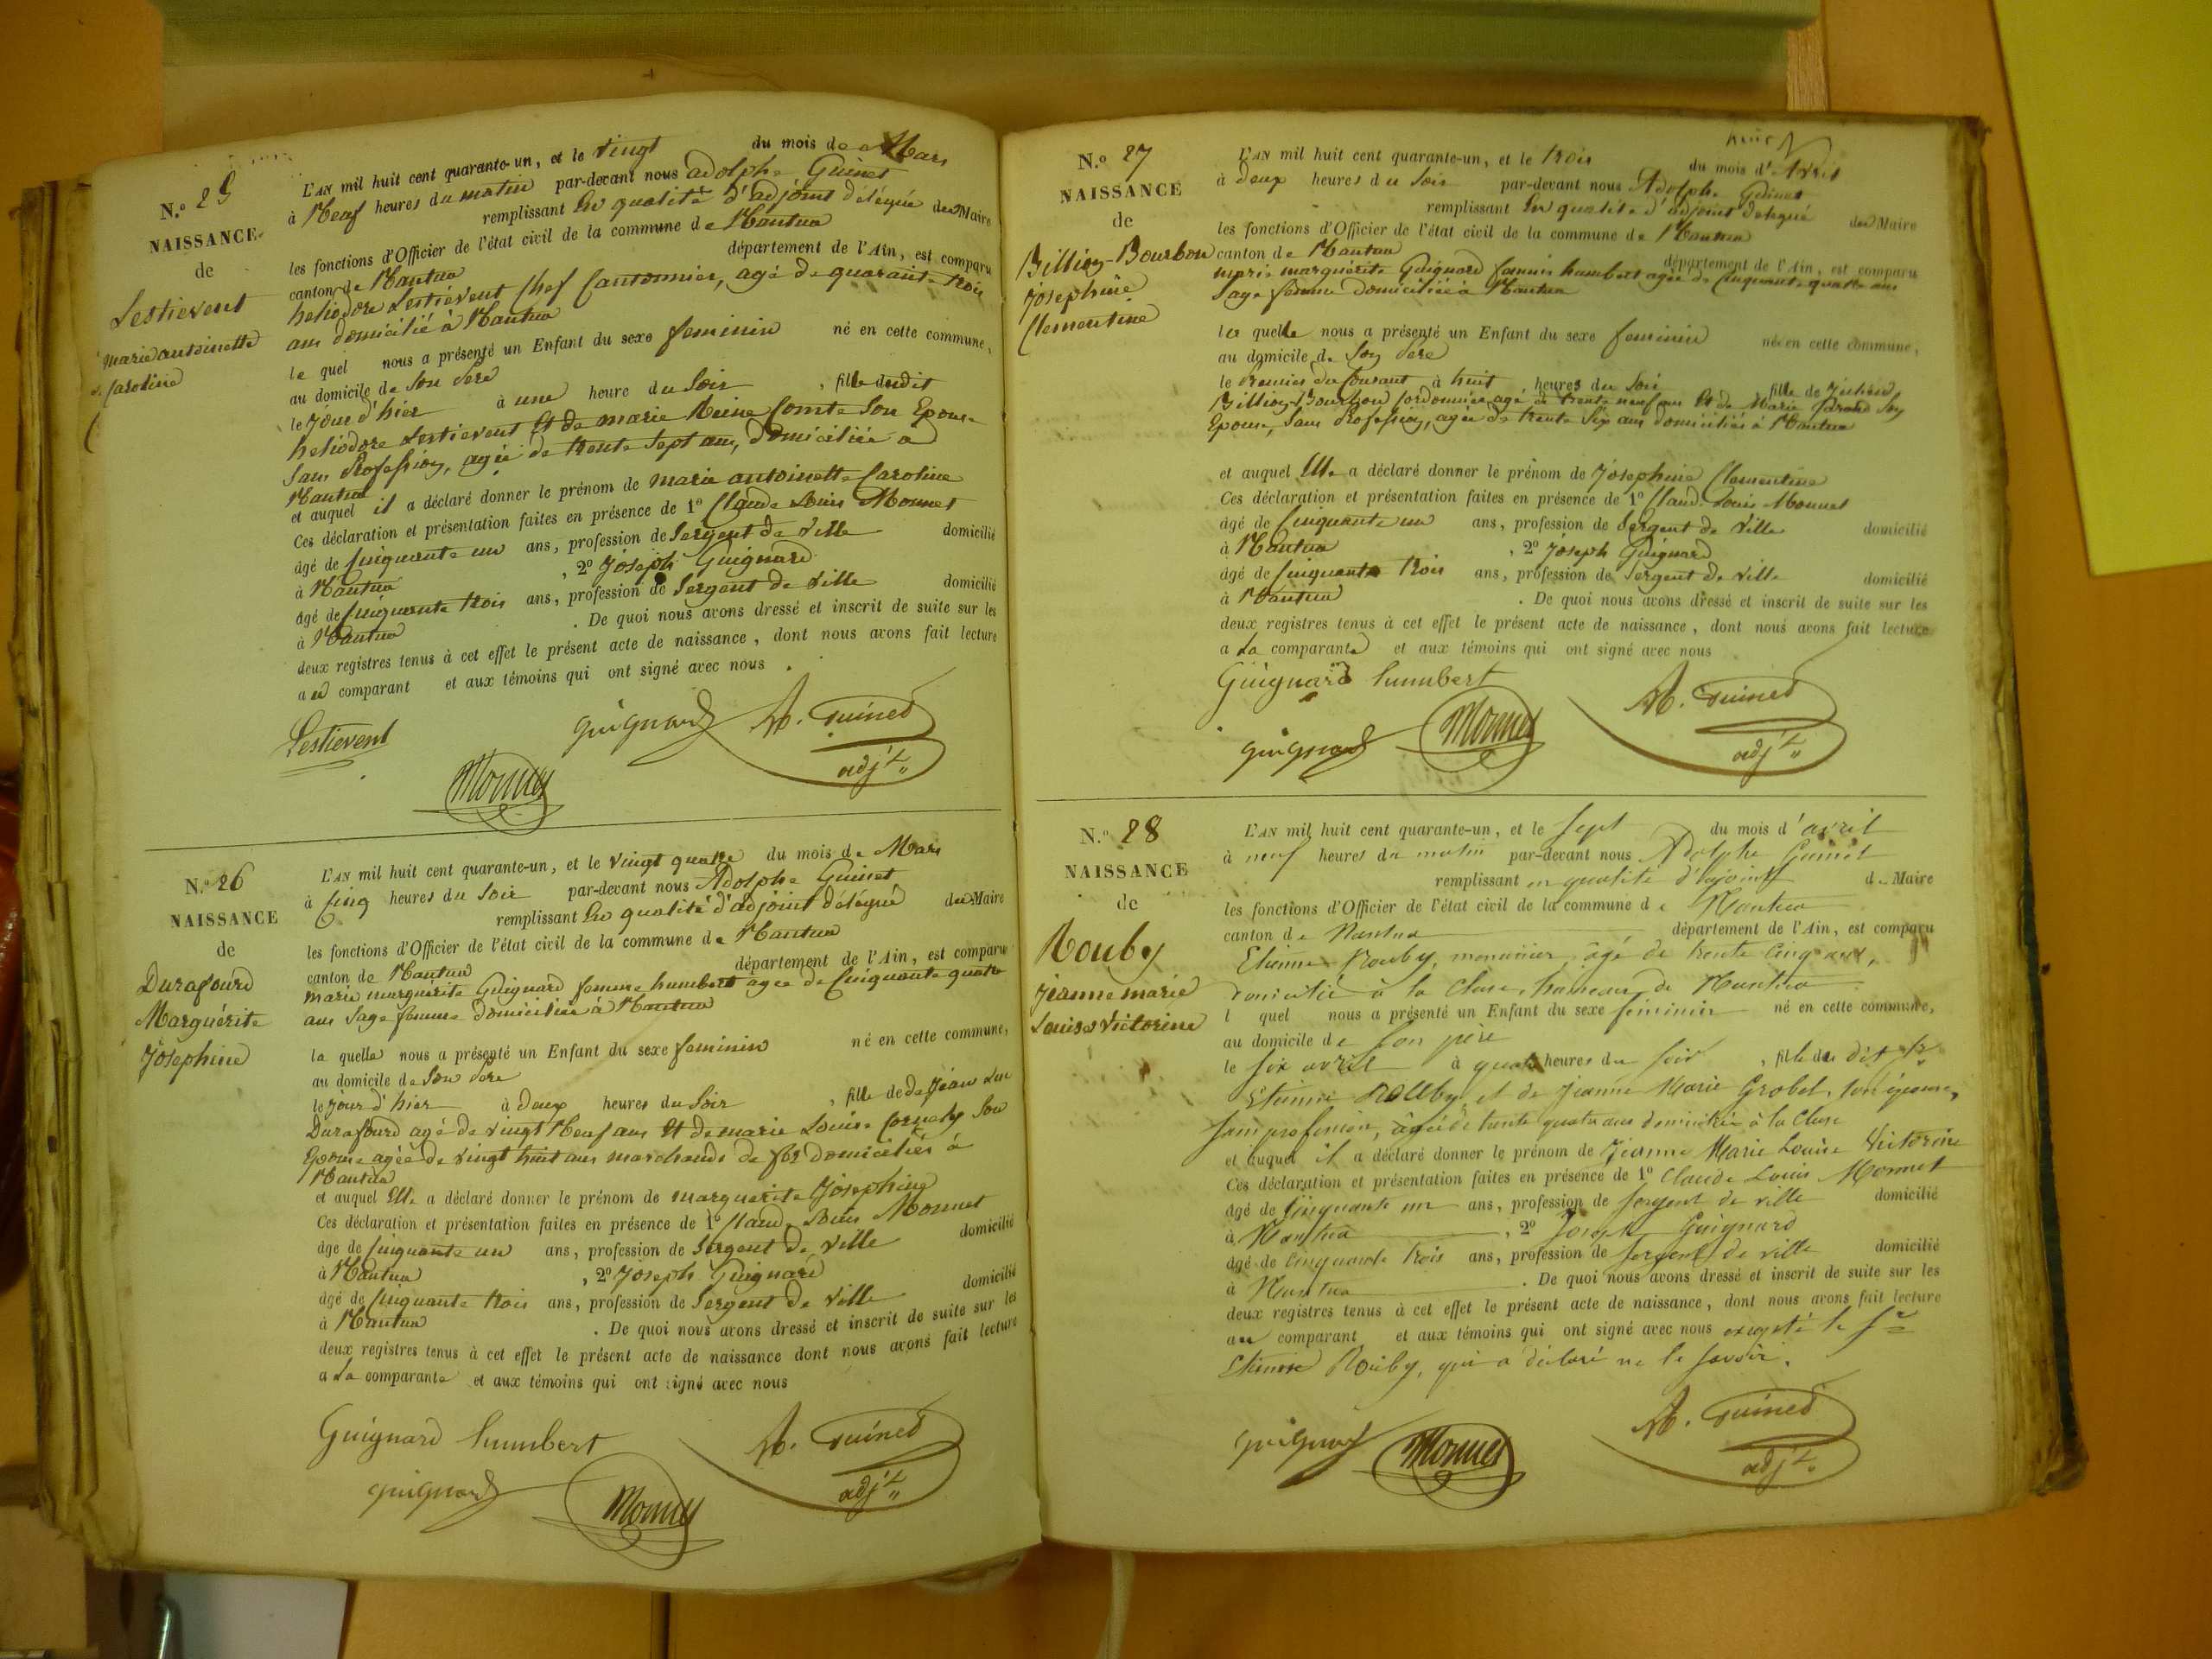 N.º 25
NAISSANCE
de
Lestievent
marie antoinette
Caroline
L'AN mil huit cent quarante-un, et le vingt du mois de Mars
à Neuf heures du matin par-devant nous adolphe Guinet
remplissant En qualité d'adjoint délégué du Maire
les fonctions d'Officier de l'état civil de la commune de Nantua
canton de Nantua département de l'Ain, est comparu
heliodore Lestiévent Chef Cantonnier, agé de quarante trois
ans domicilié à Nantua
le quel nous a présenté un Enfant du sexe feminin né en cette commune,
au domicile de Son Père
le jour d'hier à une heure du Soir , fille dudit
heliodore Lestievent Et de marie Reine Comte Son Epouse
Sans Profession, agée de trente Sept ans, domiciliée à
Nantua
et auquel il a déclaré donner le prénom de marie antoinette Caroline
Ces déclaration et présentation faites en présence de 1º Claude Louis Monnet
âgé de Cinquante un ans, profession de Sergent de Ville domicilié
à Nantua , 2º Joseph Guignard
âgé de Cinquante trois ans, profession de Sergent de Ville domicilié
à Nantua . De quoi nous avons dressé et inscrit de suite sur les
deux registres tenus à cet effet le présent acte de naissance, dont nous avons fait lecture
au comparant et aux témoins qui ont signé avec nous .
Lestievent
guignard
A. Guinet
adjt
Monnet
N.º 26
NAISSANCE
de
Durafourd
Marguérite
Josephine
L'AN mil huit cent quarante-un, et le vingt quatre du mois de Mars
à Cinq heures du Soir par-devant nous Adolphe Guinet
remplissant En qualité d'adjoint délégué du Maire
les fonctions d'Officier de l'état civil de la commune de Nantua
canton de Nantua département de l'Ain, est comparu
marie marguérite Guignard femme humbert agée de Cinquante quatre
ans Sage femme domiciliée à Nantua
la quelle nous a présenté un Enfant du sexe feminin né en cette commune,
au domicile de Son Père
le jour d'hier à deux heures du Soir , fille de Jean Luc
Durafourd agé de vingt Neuf ans Et de marie Louise Cornaly Son
Epouse agée de vingt huit ans marchands de fer domiciliés à
Nantua
et auquel Elle a déclaré donner le prénom de marguerite Josephine
Ces déclaration et présentation faites en présence de 1º Claude Louis Monnet
âgé de Cinquante un ans, profession de Sergent de Ville domicilié
à Nantua , 2º Joseph Guignard
âgé de Cinquante trois ans, profession de Sergent de Ville domicilié
à Nantua . De quoi nous avons dressé et inscrit de suite sur les
deux registres tenus à cet effet le présent acte de naissance dont nous avons fait lecture
a La comparante et aux témoins qui ont signé avec nous
Guignard humbert
A. Guinet
adjt
guignard
Monnet
N.º 27
NAISSANCE
de
Billion-Bourbon
Josephine
Clementine
L'AN mil huit cent quarante-un, et le trois du mois d'Avril
à deux heures du Soir par-devant nous Adolphe Guinet
remplissant En qualité d'adjoint delegué du Maire
les fonctions d'Officier de l'état civil de la commune de Nantua
canton de Nantua département de l'Ain, est comparu
marie marguérite Guignard femme humbert agée de Cinquante quatre ans
Sage femme domiciliée à Nantua
la quelle nous a présenté un Enfant du sexe feminin née en cette commune,
au domicile de Son Père
le Premier du Courant à huit heures du Soir fille de Julien
Billion-Bourbon Cordonnier agé de trente neuf ans Et de Marie Son
Epouse, Sans Profession, agée de trente Six ans domiciliés à Nantua
et auquel Elle a déclaré donner le prénom de Josephine Clementine
Ces déclaration et présentation faites en présence de 1º Claude Louis Monnet
âgé de Cinquante un ans, profession de Sergent de Ville domicilié
à Nantua , 2º Joseph Guignard
âgé de Cinquante trois ans, profession de Sergent de Ville domicilié
à Nantua . De quoi nous avons dressé et inscrit de suite sur les
deux registres tenus à cet effet le présent acte de naissance, dont nous avons fait lecture
a La comparante et aux témoins qui ont signé avec nous
Guignard humbert
A. Guinet
adjt
guignard
Monnet
N.º 28
NAISSANCE
de
Rouby
Jeanne marie
Louise Victorine
L'AN mil huit cent quarante-un, et le sept du mois d'avril
à neuf heures du matin par-devant nous Adolphe Guinet
remplissant en qualité d'adjoint de Maire
les fonctions d'Officier de l'état civil de la commune de Nantua
canton de Nantua département de l'Ain, est comparu
Etienne Rouby, menuisier, âgé de trente cinq ans,
domicilié à la Cluse, hameau de Nantua
l quel nous a présenté un Enfant du sexe feminin né en cette commune,
au domicile de son père
le six avril à quatre heures du soir , fille du dit Sr
Etienne Rouby et de Jeanne Marie Grobet, son épouse,
sans profession, âgée de trente quatre ans domiciliée à la Cluse
et auquel il a déclaré donner le prénom de Jeanne Marie Louise Victorine
Ces déclaration et présentation faites en présence de 1º Claude Louis Monnet
âgé de Cinquante un ans, profession de sergent de ville domicilié
à Nantua , 2º Joseph Guignard
âgé de Cinquante trois ans, profession de sergent de ville domicilié
à Nantua . De quoi nous avons dressé et inscrit de suite sur les
deux registres tenus à cet effet le présent acte de naissance, dont nous avons fait lecture
au comparant et aux témoins qui ont signé avec nous excepté le Sr
Etienne Rouby, qui a déclaré ne le savoir.
A. Guinet
adjt
guignard
Monnet